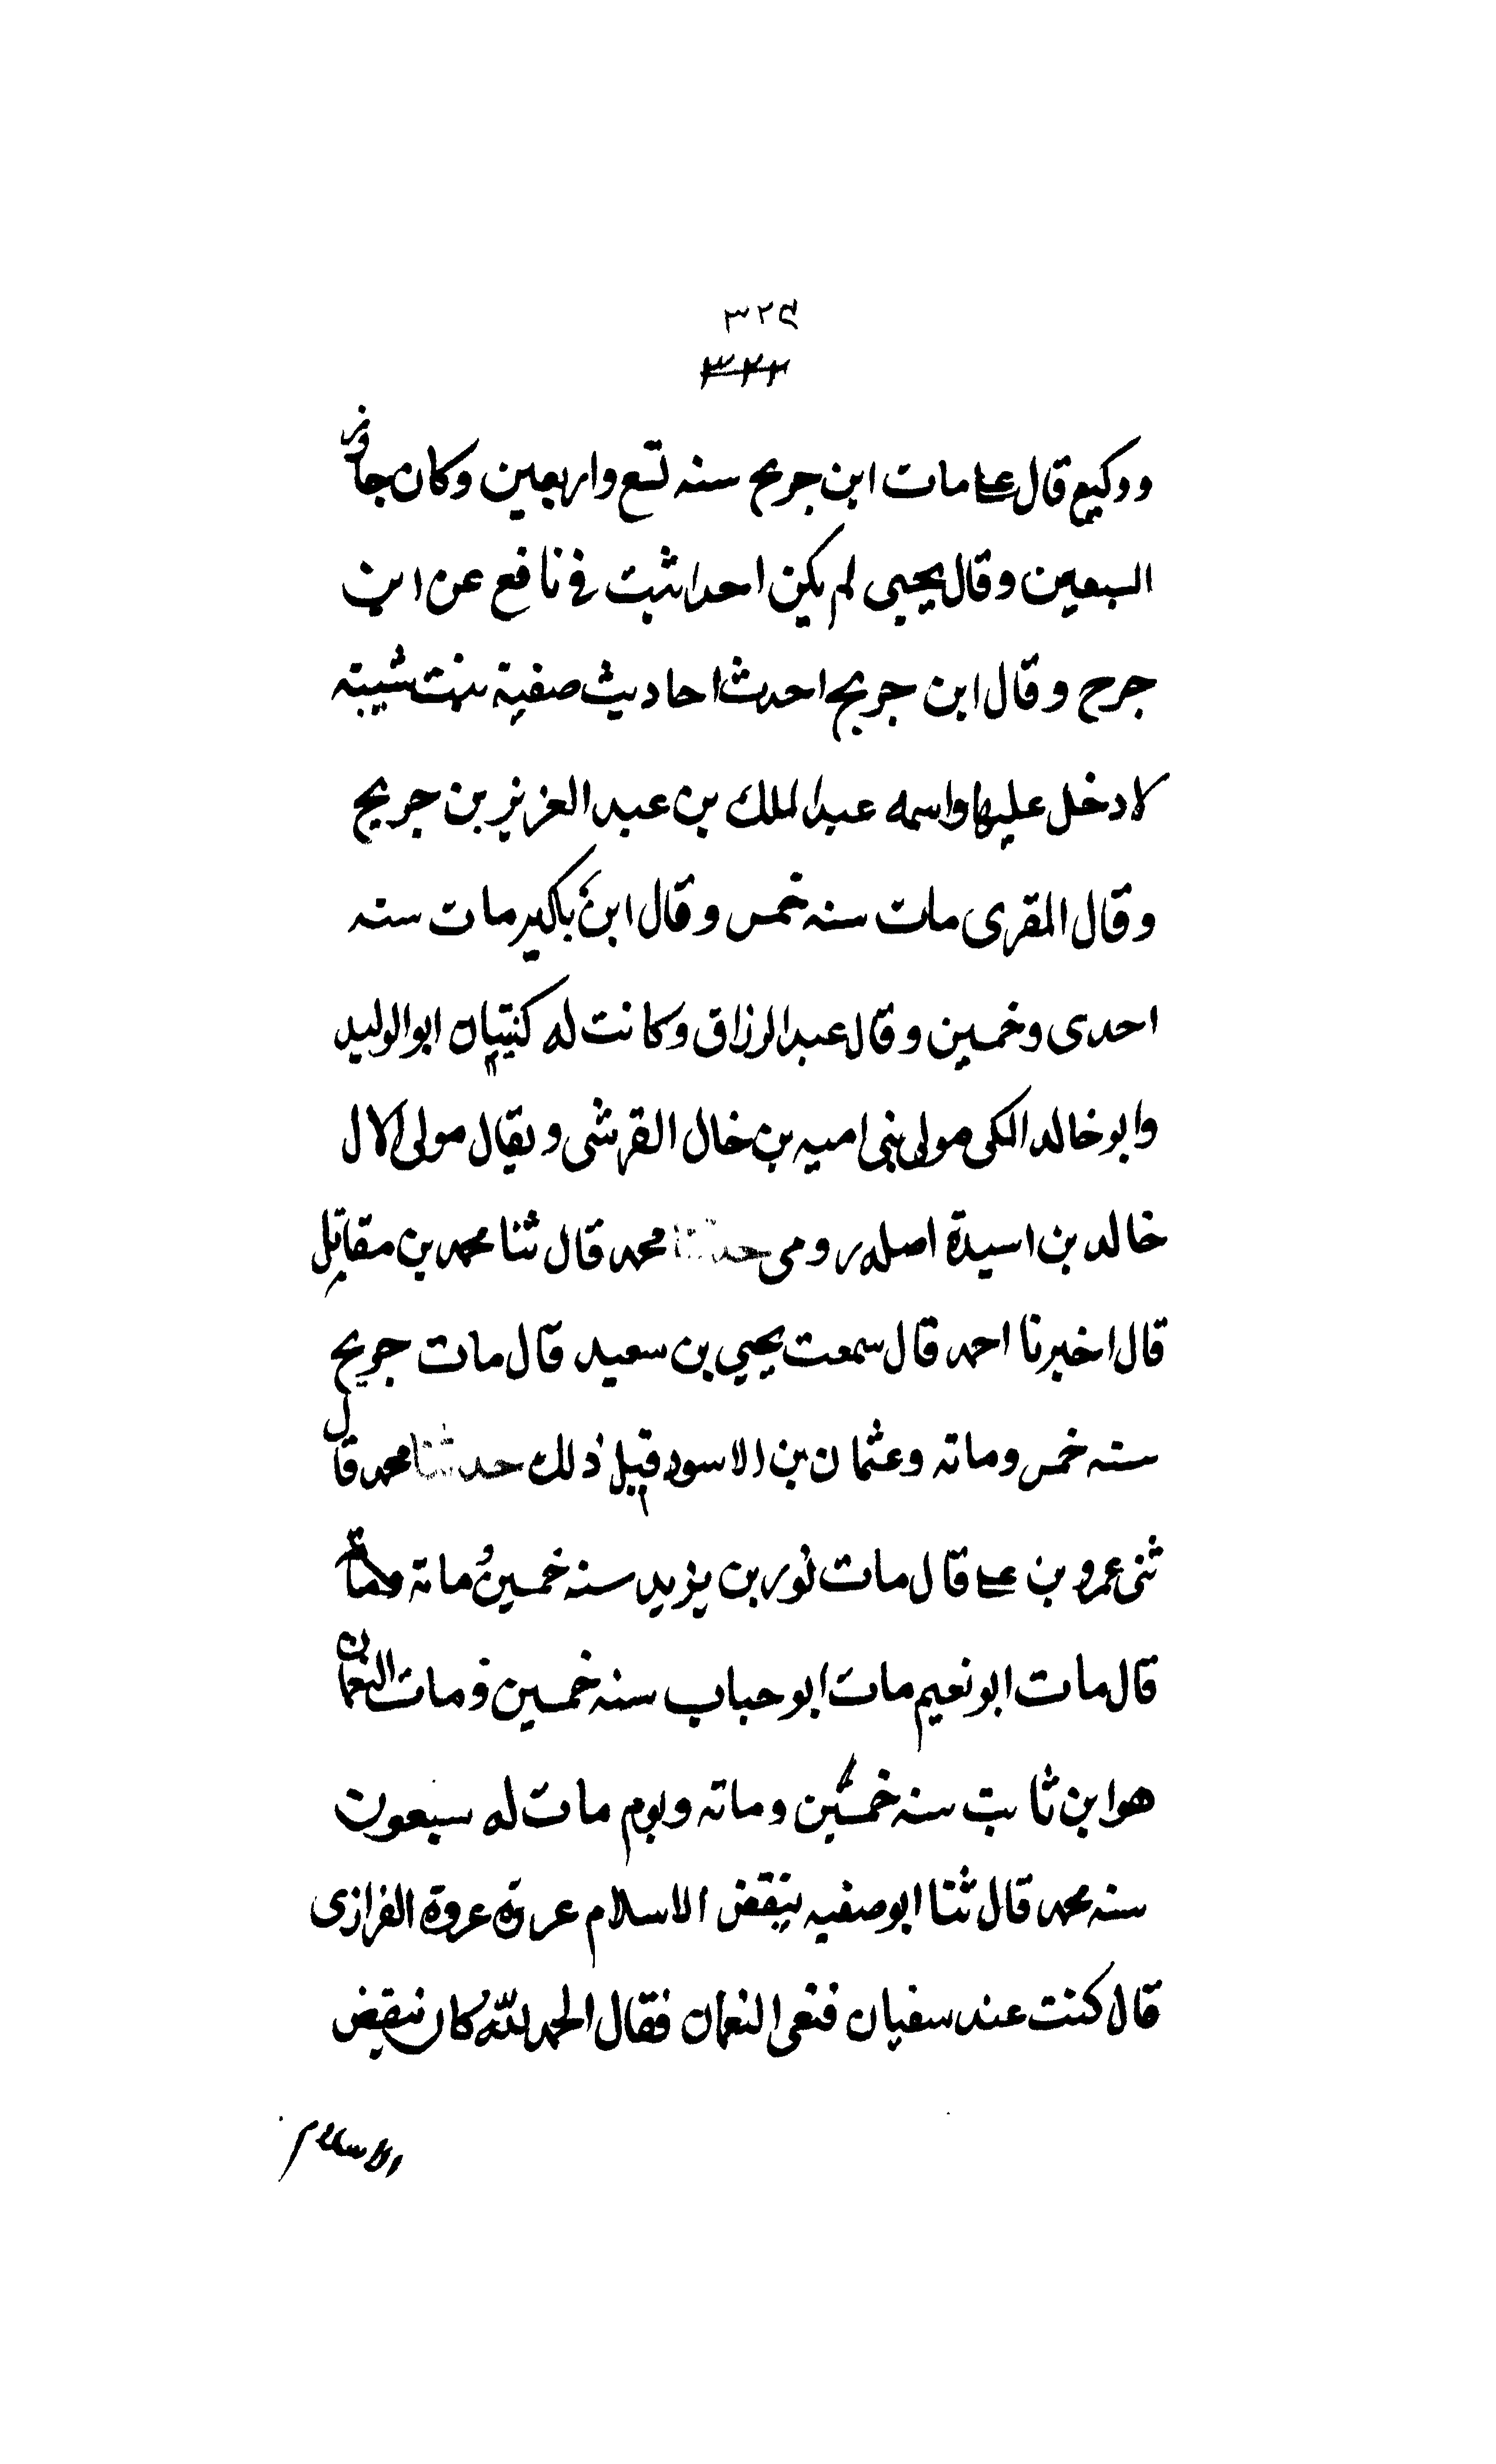 ٣٢٩
٣٢٢
ووكيع قال علي مات ابن جريح سنه تسع واربعين وكان جاوز
السبعين وقال يحيى لم يكن احد اثبت في نافع عن ابن
جرح وقال ابن جريح احدث احاديث صفية بنت شيبته
لادخل عليها واسمه عبد الملك بن عبد العزيز بن جريح
وقال المقرى مات سنه خمس وقال ابن بكير مات سنه
احدى وخمسين وقال عبد الرزاق وكانت له كنيتان ابو الوليد
وابو خالد المكى مولى بنى اميه بن خال القرشى ويقال مولى لال
خالد بن اسيدة اصله رومى حدثنا محمد قال ثنا محمد بن مقاتل
قال اخبرنا احمد قال سمعت يحيي بن سعيد قال مات جريح
سنه خمس ومائه وعثمان بن الاسود قبل ذلك حدثنا محمد قال
ثنى عمرو بن علي قال مات ثور بن يزيد سنه خمسين ومائة
قال مات ابو نعيم مات ابو حباب سنه خمسين ومات النعمان
هو ابن ثابت سنه خمسين ومائه ويوم مات له سبعون
سنه محمد قال ثنا ابو صفيه ينقض الاسلام عروة عروة الفزازى
قال كنت عند سفيان فنعى النعمان فقال الحمد لله كان ينقض
الاسلام